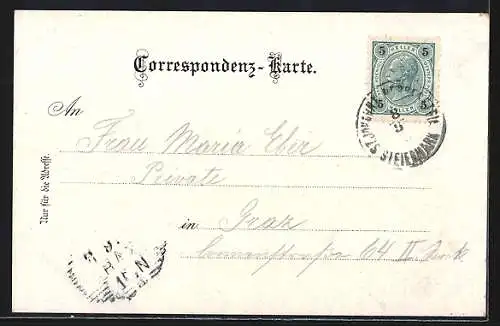 5 HELLER 5
Correspondenz-Karte.
5 HELLER 5
An
STEIERMARK
Frau Maria Ebir
Private
Nur für die Adresse.
in Graz
64 II. Stock